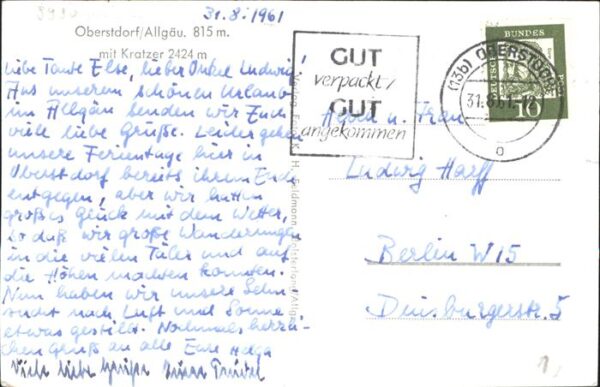 31.8.1961
Oberstdorf/Allgäu. 815 m.
mit Kratzer 2424 m
Liebe Tante Else, lieber Onkel Ludwig!
Aus unserem schönen Urlaub
im Allgäu senden wir Euch
viele liebe Grüße. Leider gehen
unsere Ferientage hier in
Oberstdorf bereits ihrem Ende
entgegen, aber wir hatten
großes Glück mit dem Wetter,
so daß wir große Wanderungen
in die vielen Täler und auf
die Höhen machen konnten.
Nun haben wir unsere Sehn-
sucht nach Luft und Sonne
etwas gestillt. Nochmals herzli-
chen Gruß an alle Eure Helga
Viele liebe Grüße Trudel
GUT
verpackt/
GUT
angekommen
(13b) OBERSTDORF
31.8.61
a
DEUTSCHE BUNDESPOST
10
Herrn u. Frau
Ludwig Harff
Berlin W 15
Duisburgerstr. 5